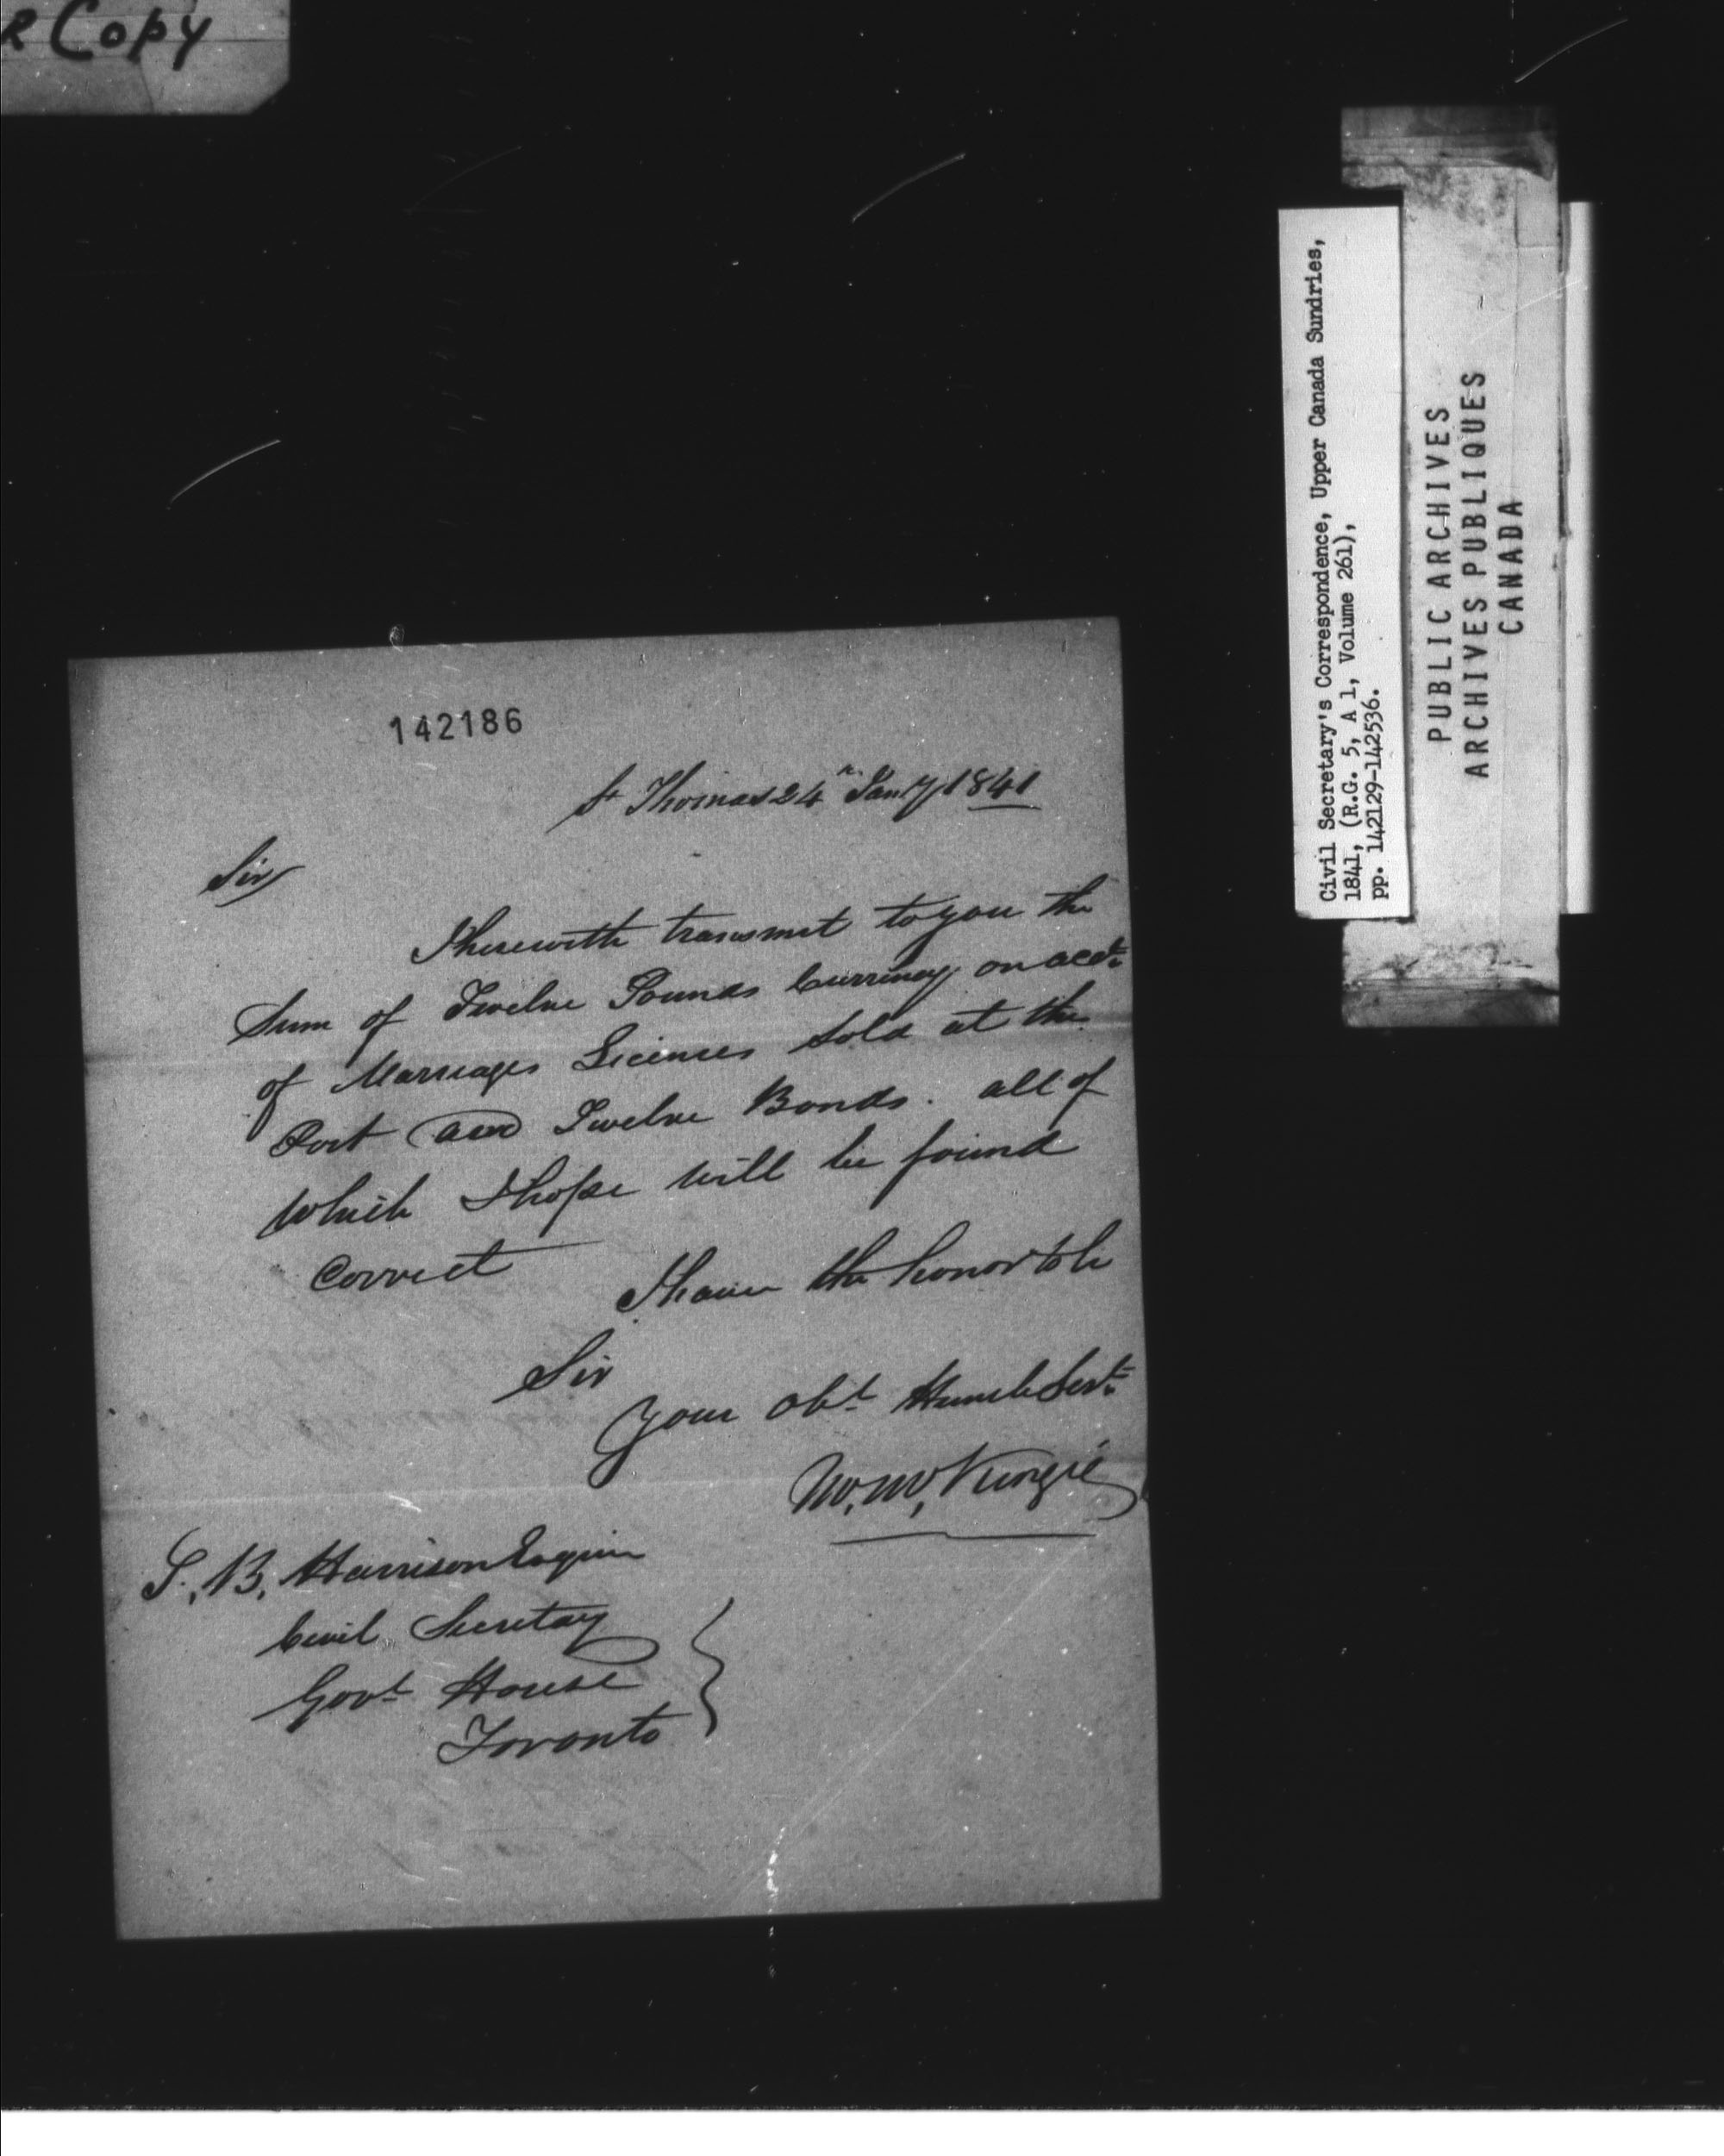 R Copy
142186
St Thomas 24th Jany 1841
Sir
I herewith transmit to you the
Sum of Twelve Pounds Currency on acct.
of Marriages Licences Sold at the
Port and Twelve Bonds. all of
which I hope will be found
Correct
I have the honor to be
Sir
Your Obt. Humble Servt.
S. B. Harrison Esquire
Civil Secretay
Govt House
Toronto
Civil Secretary's Correspondence, Upper Canada Sundries,
1841, (R.G. 5, A 1, Volume 261),
pp. 142129-142536.
PUBLIC ARCHIVES
ARCHIVES PUBLIQUES
CANADA